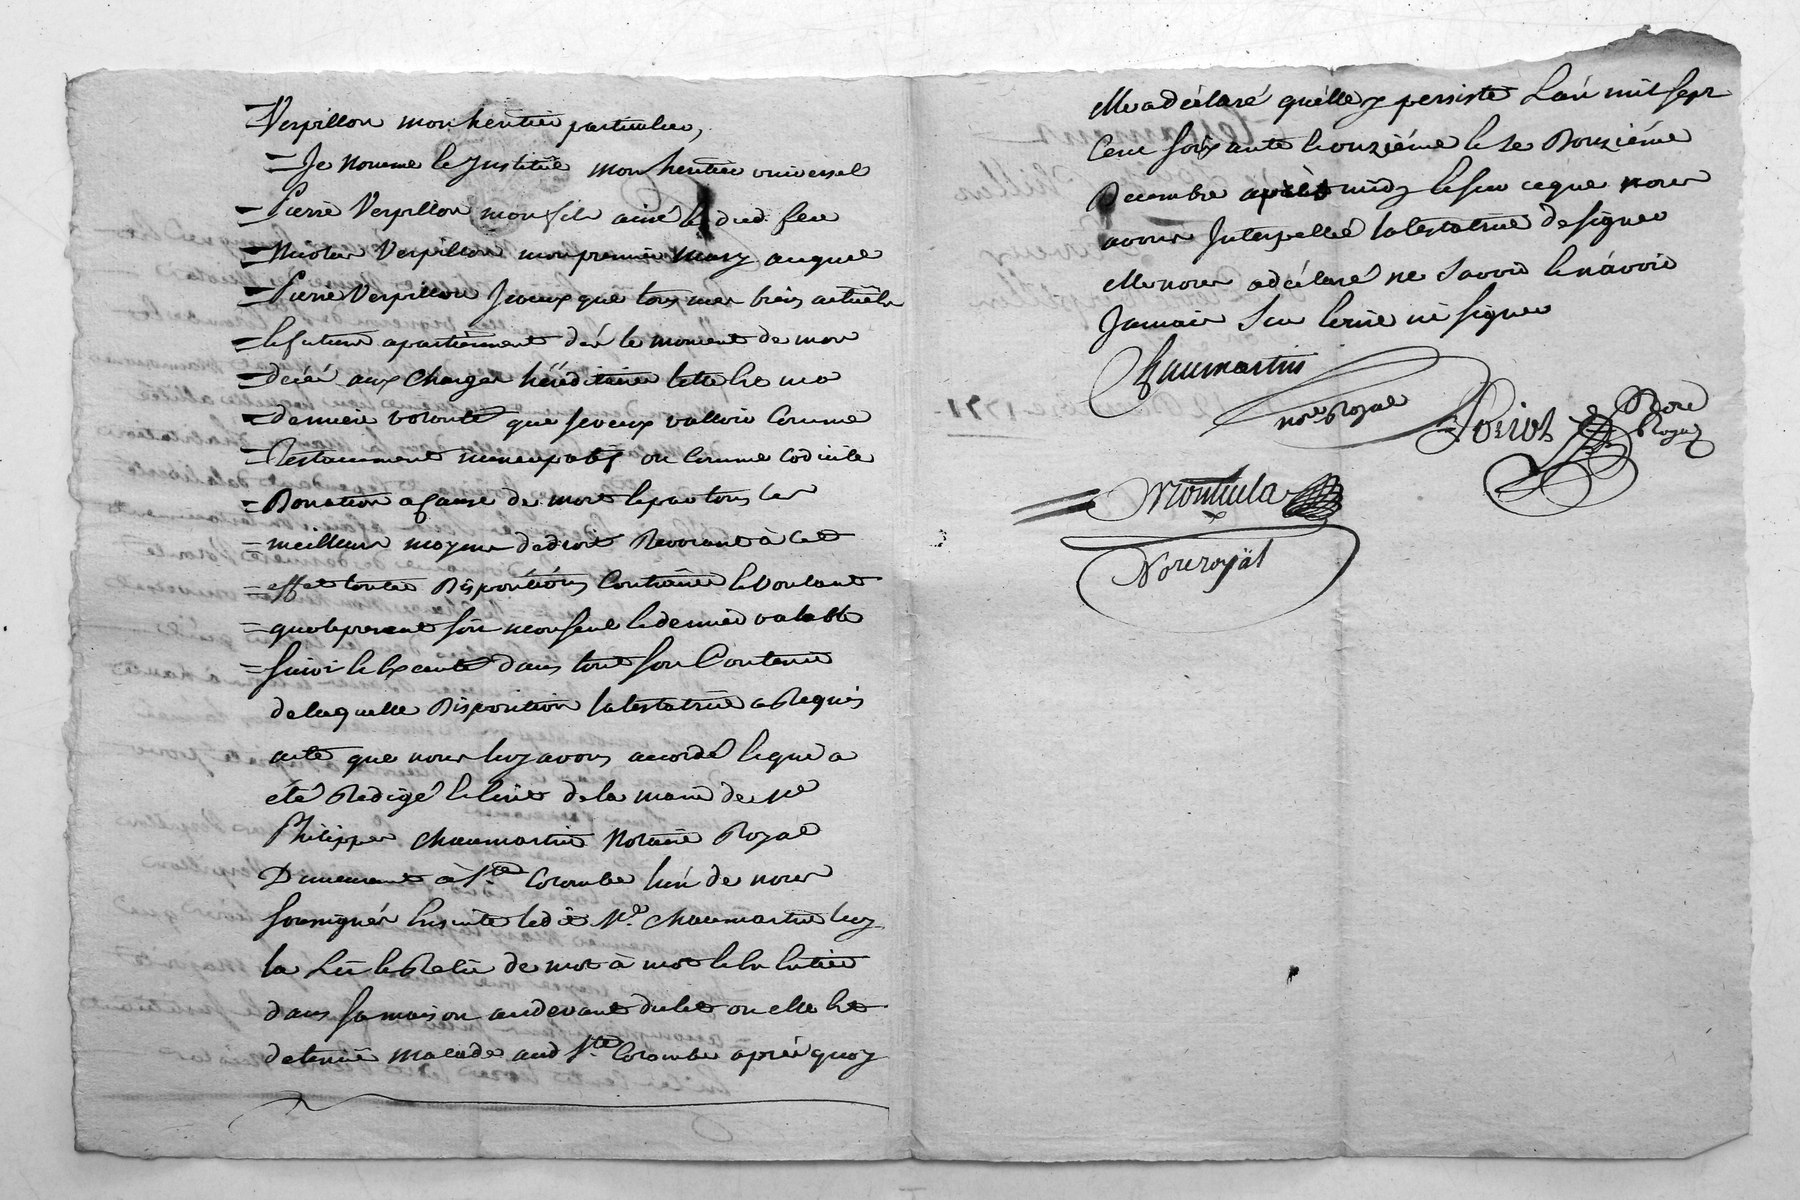 Verpillon mon heritier particulier,
= Je nomme & Jnstitüe mon heritier universel
= Pierre Verpillon mon fils ainé & dud. feu
= Nicolas Verpillon mon premier mary auquel
= Pierre Verpillon Je veux que tous mes biens actuels
= & futurs apartiennent dès le moment de mon
= décés aux charges héréditaires telle est ma
= derniere volonté que je veux valloir comme
= Testamment nuncupatif ou comme codicile
= Donation a Cause de mort & par tous les
= meilleurs moyens de droit Revoquant à cet
= effet toutes Dispositions Contraires & voulant
= que le present soit mon seul & dernier valable
= suivi & Executé dans tout son Contenu
de laquelle Disposition la testatrice a Requis
acte que nous luy avons accordé & qui a
été Redigé & Ecrit de la main de Me
Philippe Chaumartin Notaire Royal
Demeurant à Ste Colombe l'un de nous
soussignés Ensuite ledit Me. Chaumartin luy
la Lû & Relû de mot à mot & En Entier
dans sa maison audevant du lit ou elle Est
detenüe malade aud Ste Colombe après quoy
elle a déclaré qu'elle y persiste L'an mil sept
Cent soixante & onzième & le Douzième
Decembre après midy & sur ce que nous
avons Jnterpellé la testatrice de signer
elle nous a déclaré ne savoir & n'avoir
Jamais Su Ecrire ni signer
Chaumartin
nore Royal
Poirot Nore
Royal
Montucla
Nore royal
1771